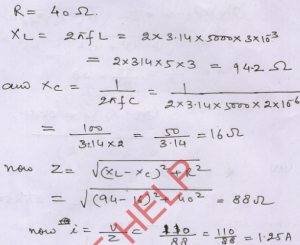 R = 40 Ω.
XL = 2πfL = 2 × 3.14 × 5000 × 3×10⁻³
= 2×314×5×3 = 94.2 Ω
and XC = 1/2πfC = 1/2×3.14×5000×2×10⁻⁶
= 100/3.14×2 = 50/3.14 = 16 Ω
now Z = √(XL - XC)² + R²
= √(94-16)² + 40² = 88 Ω
now i = V/Z 110/88 = 110/88 = 1.25A
HELP